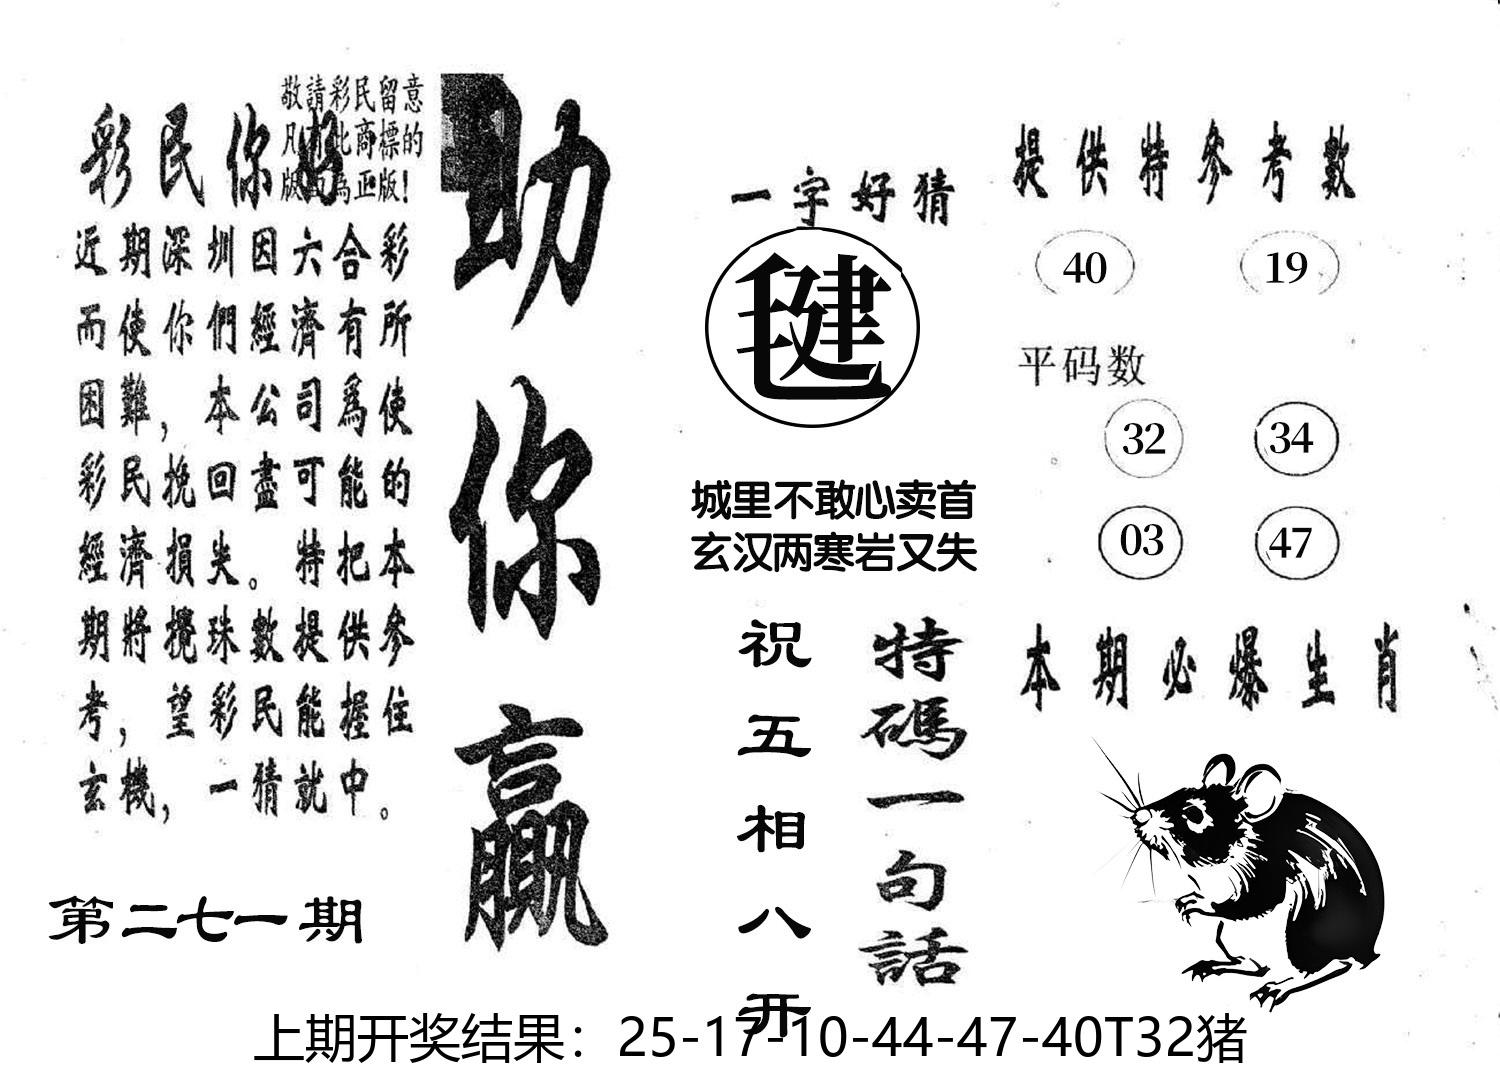 敬請彩民留意
凡有此商標的
版面為正版!
彩民你好
近期深圳因六合彩
而使你們經濟有所
困難，本公司爲使
彩民挽回盡可能的
經濟損失。特把本
期將攪珠數提供參
考，望彩民能握住
玄機，一猜就中。
第二七一期
助你贏
一字好猜
毽
城里不敢心卖首
玄汉两寒岩又失
特碼一句話
祝五相八开
提供特參考數
40 19
平码数
32 34
03 47
本期必爆生肖
上期开奖结果：25-17-10-44-47-40T32猪